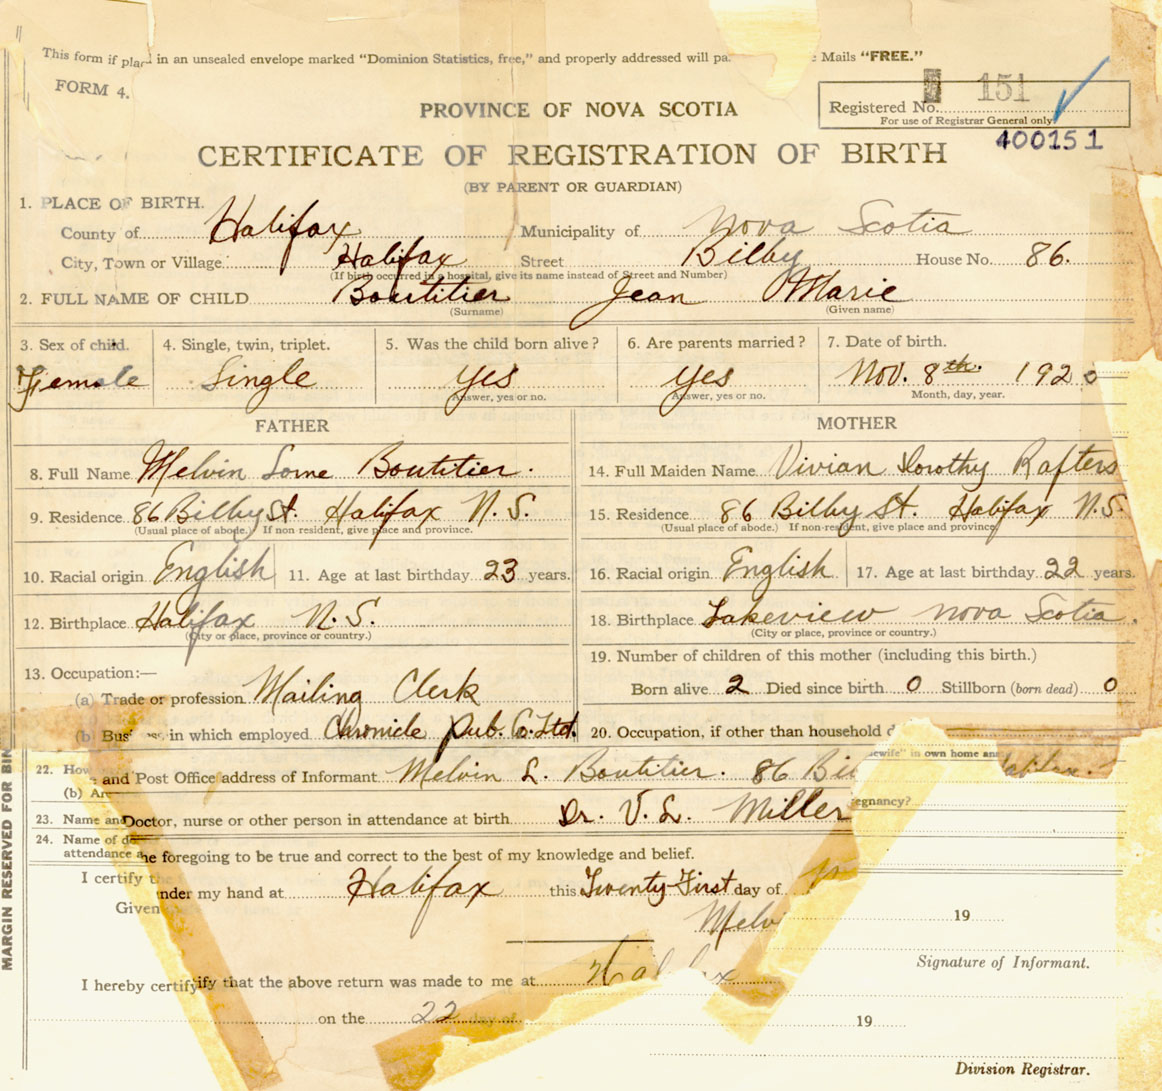 This form if placed in an unsealed envelope marked "Dominion Statistics, free," and properly addressed will pa Mails "FREE."
FORM 4.
PROVINCE OF NOVA SCOTIA
Registered No. 151
For use of Registrar General only
400151
CERTIFICATE OF REGISTRATION OF BIRTH
(BY PARENT OR GUARDIAN)
1. PLACE OF BIRTH.
County of Halifax Municipality of Nova Scotia
City, Town or Village Halifax Street Bilby House No. 86.
(If birth occurred in a hospital, give its name instead of Street and Number)
2. FULL NAME OF CHILD Boutilier Jean Marie
(Surname) (Given name)
3. Sex of child. 4. Single, twin, triplet. 5. Was the child born alive? 6. Are parents married? 7. Date of birth.
Female Single yes yes Nov. 8th. 1920
Answer, yes or no. Answer, yes or no. Month, day, year.
FATHER MOTHER
8. Full Name Melvin Lorne Boutilier. 14. Full Maiden Name Vivian Dorothy Rafters
9. Residence 86 Bilby St. Halifax N.S. 15. Residence 86 Bilby St. Halifax N.S.
(Usual place of abode.) If non-resident, give place and province. (Usual place of abode.) If non-resident, give place and province
10. Racial origin English 11. Age at last birthday 23 years. 16. Racial origin English 17. Age at last birthday 22 years.
12. Birthplace Halifax N.S. 18. Birthplace Lakeview Nova Scotia.
(City or place, province or country.) (City or place, province or country.)
13. Occupation:— 19. Number of children of this mother (including this birth.)
(a) Trade or profession Mailing Clerk Born alive 2 Died since birth 0 Stillborn (born dead) 0
(b) Bus ess in which employed Chronicle Pub. Co. Ltd. 20. Occupation, if other than household d
ewife" in own home an
22. How and Post Office address of Informant Melvin L. Boutilier. 86 Bil Halifax.
(b) Ar egnancy?
23. Name and Doctor, nurse or other person in attendance at birth Dr. V. L. Miller
24. Name of do
attendance a he foregoing to be true and correct to the best of my knowledge and belief.
I certify the
Given under my hand at Halifax this Twenty-First day of 19
Melvi
Signature of Informant.
I hereby certify that the above return was made to me at Halifax
on the 22 day of 19
Division Registrar.
MARGIN RESERVED FOR BIN